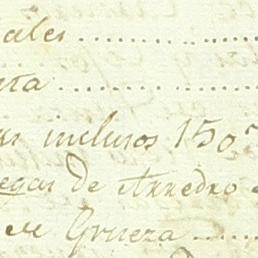 ales ..............
ta ..............
as inclusos 150
egas de Arnedro
de Grueza ........